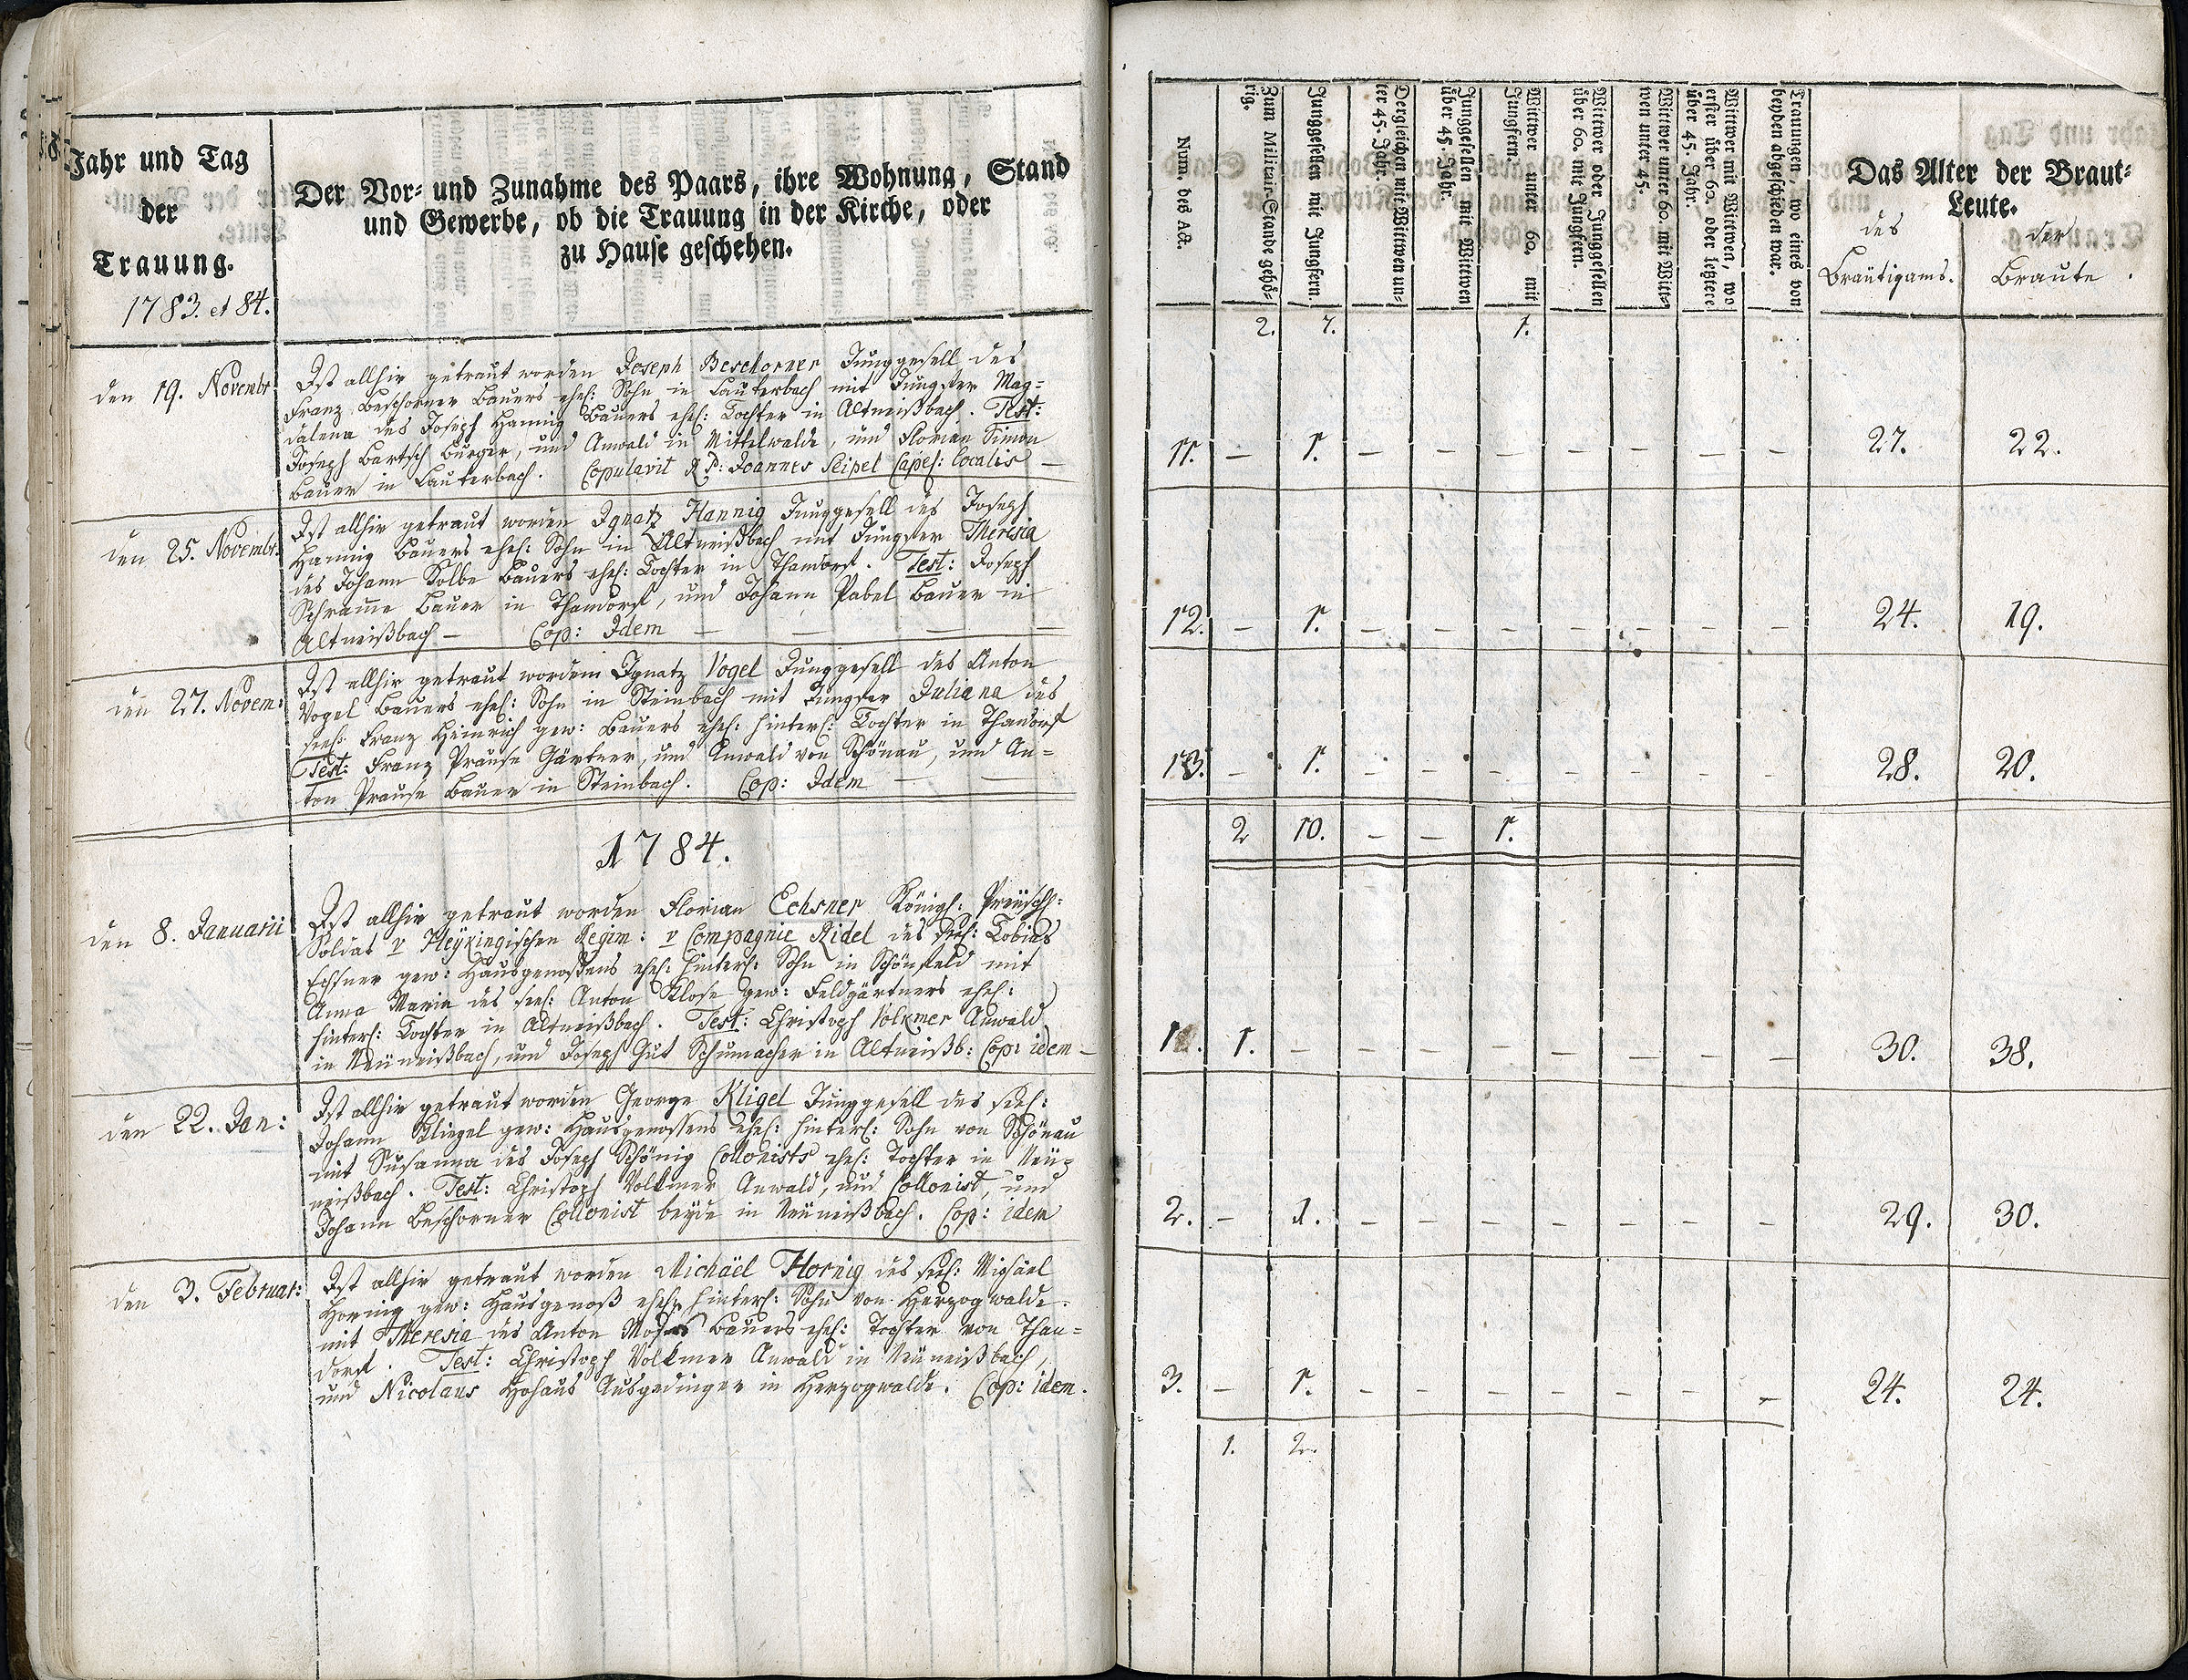 Jahr und Tag
der
Trauung.
1783. et 84.
Der Vor- und Zunahme des Paars, ihre Wohnung, Stand
und Gewerbe, ob die Trauung in der Kirche, oder
zu Hause geschehen.
den 19. Novembr
Ist allhir getraut worden Joseph Beschorner Junggesell des
Franz Beschorner Bauers ehel: Sohn in Lauterbach mit Jungfer Mag=
dalena des Joseph Hannig Bauers ehel: Tochter in Altneißbach. Test:
Joseph Bartsch Burger, und Anwald in Mittelwalde, und Florian Simon
Bauer in Lauterbach. Copulavit R. P: Joannes Seipel Capel: Localis —
den 25. Novembr.
Ist allhir getraut worden Ignatz Hannig Junggesell des Joseph
Hannig Bauers ehel: Sohn in Altneißbach mit Jungfer Theresia
des Johann Kolbe Bauers ehel: Tochter in Thandorf. Test: Joseph
Schramme Bauer in Thandorf, und Johann Pabel Bauer in
Altneißbach — Cop: Idem — — — —
den 27. Novem:
Ist allhir getraut worden Ignatz Vogel Junggesell des Anton
Vogel Bauers ehel: Sohn in Steinbach mit Jungfer Juliana des
seel: Franz Heinrich gew: Bauers ehel: hinterl: Tochter in Thandorf
Test: Franz Prause Gärtner, und Anwald von Schönau, und An=
ton Prause Bauer in Steinbach. Cop: Idem — —
1784.
den 8. Januarii
Ist allhir getraut worden Florian Echsner Königl: Preüsch:
Soldat v Heÿkingischen Regim: v Compagnie Ridel des seel: Tobias
Echsner gew: Hausgenoßens ehel: hinterl: Sohn in Schönfeld mit
Anna Maria des seel: Anton Klose gew: Feldgärtners ehel:
hinterl: Tochter in Altneißbach. Test: Christoph Volkmer Anwald
in Neüneißbach, und Joseph Gut Schumacher in Altneißb: Cop: idem —
den 22. Jan:
Ist allhir getraut worden George Kligel Junggesell des seel:
Johann Kliegel gew: Hausgenossens ehel: hinterl: Sohn von Schönau
mit Susanna des Joseph Schönig Collonists ehel: Tochter in Neü=
neißbach. Test: Christoph Volkmer Anwald, und Collonist, und
Johann Beschorner Collonist beyde in Neüneißbach. Cop: idem
den 3. Februar:
Ist allhir getraut worden Michäel Hornig des seel: Michäel
Hornig gew: Hausgenoß ehel: hinterl: Sohn von Herzogwalde.
mit Theresia des Anton Bauers ehel: Tochter von Than=
dorf. Test: Christoph Volkmer Anwald in Neüneißbach,
und Nicolaus Hohaus Ausgedinger in Herzogwalde. Cop: idem.
Num. des Act.
Zum Militair-Stande gehö-
rig.
Junggesellen mit Jungfern.
Dergleichen mit Wittwen un-
ter 45. Jahr.
Junggesellen mit Wittwen
über 45. Jahr.
Wittwer unter 60. mit
Jungfern.
Wittwer oder Junggesellen
über 60. mit Jungfern.
Wittwer unter 60. mit Witt-
wen unter 45.
Wittwer mit Wittwen, wo
erster über 60. oder letztere
über 45. Jahr.
Trauungen, wo eines von
beyden abgeschieden war.
Das Alter der Braut-
Leute.
des
Bräutigams.
der
Braute.
2. 7. 1.
11. — 1. — — — — — — — 27. 22.
12. — 1. — — — — — — — 24. 19.
13. — 1. — — — — — — — 28. 20.
2 10. — — 1.
1. 1. — — — — — — — — 30. 38.
2. — 1. — — — — — — — 29. 30.
3. — 1. — — — — — — — 24. 24.
1. 2.